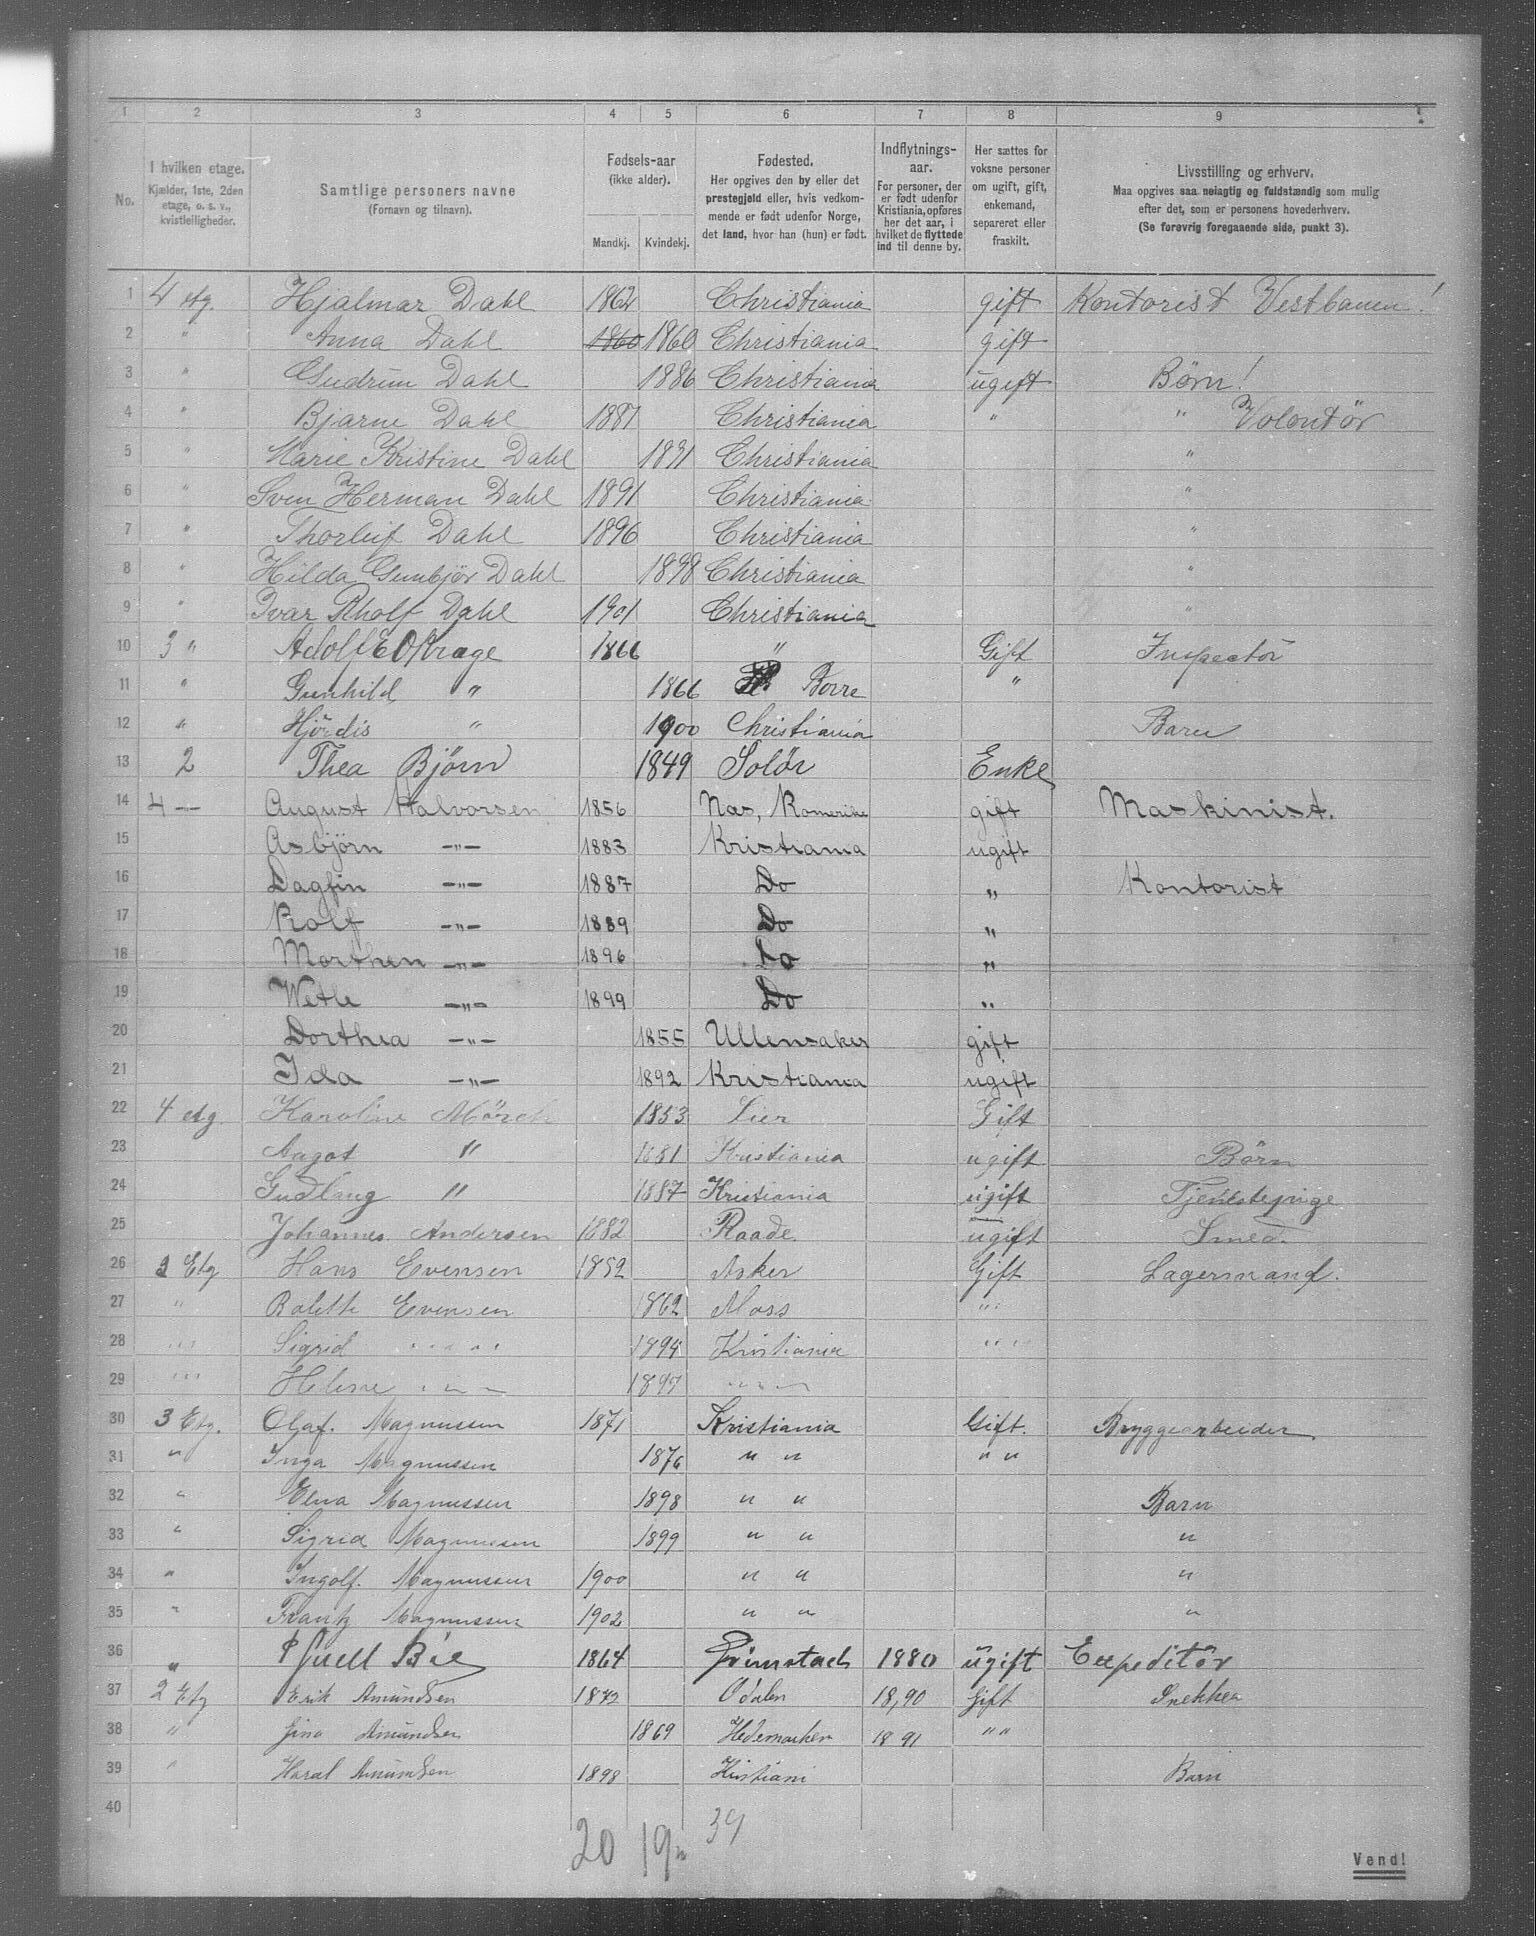 1 2 3 4 5 6 7 8 9
No. I hvilken etage. Kjælder, 1ste, 2den etage, o. s. v., kvistleiligheder. Samtlige personers navne (Fornavn og tilnavn). Fødsels-aar (ikke alder). Mandkj. Kvindekj. Fødested. Her opgives den by eller det prestegjeld eller, hvis vedkommende er født udenfor Norge, det land, hvor han (hun) er født. Indflytnings-aar. For personer, der er født udenfor Kristiania, opføres her det aar, i hvilket de flyttede ind til denne by. Her sættes for voksne personer om ugift, gift, enkemand, separeret eller fraskilt. Livsstilling og erhverv. Maa opgives saa nøiagtig og fuldstændig som mulig efter det, som er personens hovederhverv. (Se forøvrig foregaaende side, punkt 3).
1 4 etg. Hjalmar Dahl 1862 Christiania gift Kontorist Vestbanen!
2 " Anna Dahl 1860 1860 Christiania gift
3 " Gudrun Dahl 1886 Christiania ugift Børn!
4 " Bjarne Dahl 1887 Christiania " " Volontör
5 " Marie Kristine Dahl 1891 Christiania "
6 " Sven Herman Dahl 1891 Christiania "
7 " Thorleif Dahl 1896 Christiania "
8 " Hilda Gunbjör Dahl 1898 Christiania "
9 " Ivar Rholf Dahl 1901 Christiania "
10 3 " Adolf E O Krage 1866 " Gift Inspectör
11 " Gunhild " 1866 Borre "
12 " Hjördis " 1900 Christiania Barn
13 2 Thea Bjørn 1849 Solör Enke
14 4 — August Halvorsen 1856 Nas, Romerike gift Maskinist.
15 Asbjörn —"— 1883 Kristiania ugift
16 Dagfin —"— 1887 Do " Kontorist
17 Rolf —"— 1889 Do "
18 Morthen —"— 1896 Do "
19 Wetle —"— 1899 Do "
20 Dorthea —"— 1855 Ullensaker gift
21 Ida —"— 1892 Kristiania ugift
22 4 etg Karoline Mörch 1853 Lier Gift
23 Aagot " 1881 Kristiania ugift Børn
24 Gudlaug " 1887 Kristiania ugift Tjenestepige
25 Johannes Andersen 1882 Raade. ugift Smed.
26 Etg Hans Evensen 1852 Asker Gift Lagermand.
27 " Bolette Evensen 1862 Moss "
28 " Sigrid " 1894 Kristiania "
29 " Helene " 1897 "
30 3 Etg. Olaf. Magnussen 1871 Kristiania Gift. Bryggearbeider
31 " Inga Magnussen 1876 " " " "
32 " Elna Magnussen 1898 " " Barn
33 " Sigrid Magnussen 1899 " " "
34 " Ingolf. Magnussen 1900 " " "
35 " Frantz Magnussen 1902 " " "
36 " Bie 1864 Grimstad 1880 ugift Expeditör
37 2 Etg Erik Amundsen 1872 Odalen 18,90 Gift Snekker
38 " Gina Amundsen 1869 Hedemarken 1891 " "
39 " Haral Amundsen 1898 Kristiani Barn
40
20 19 39
Vend!